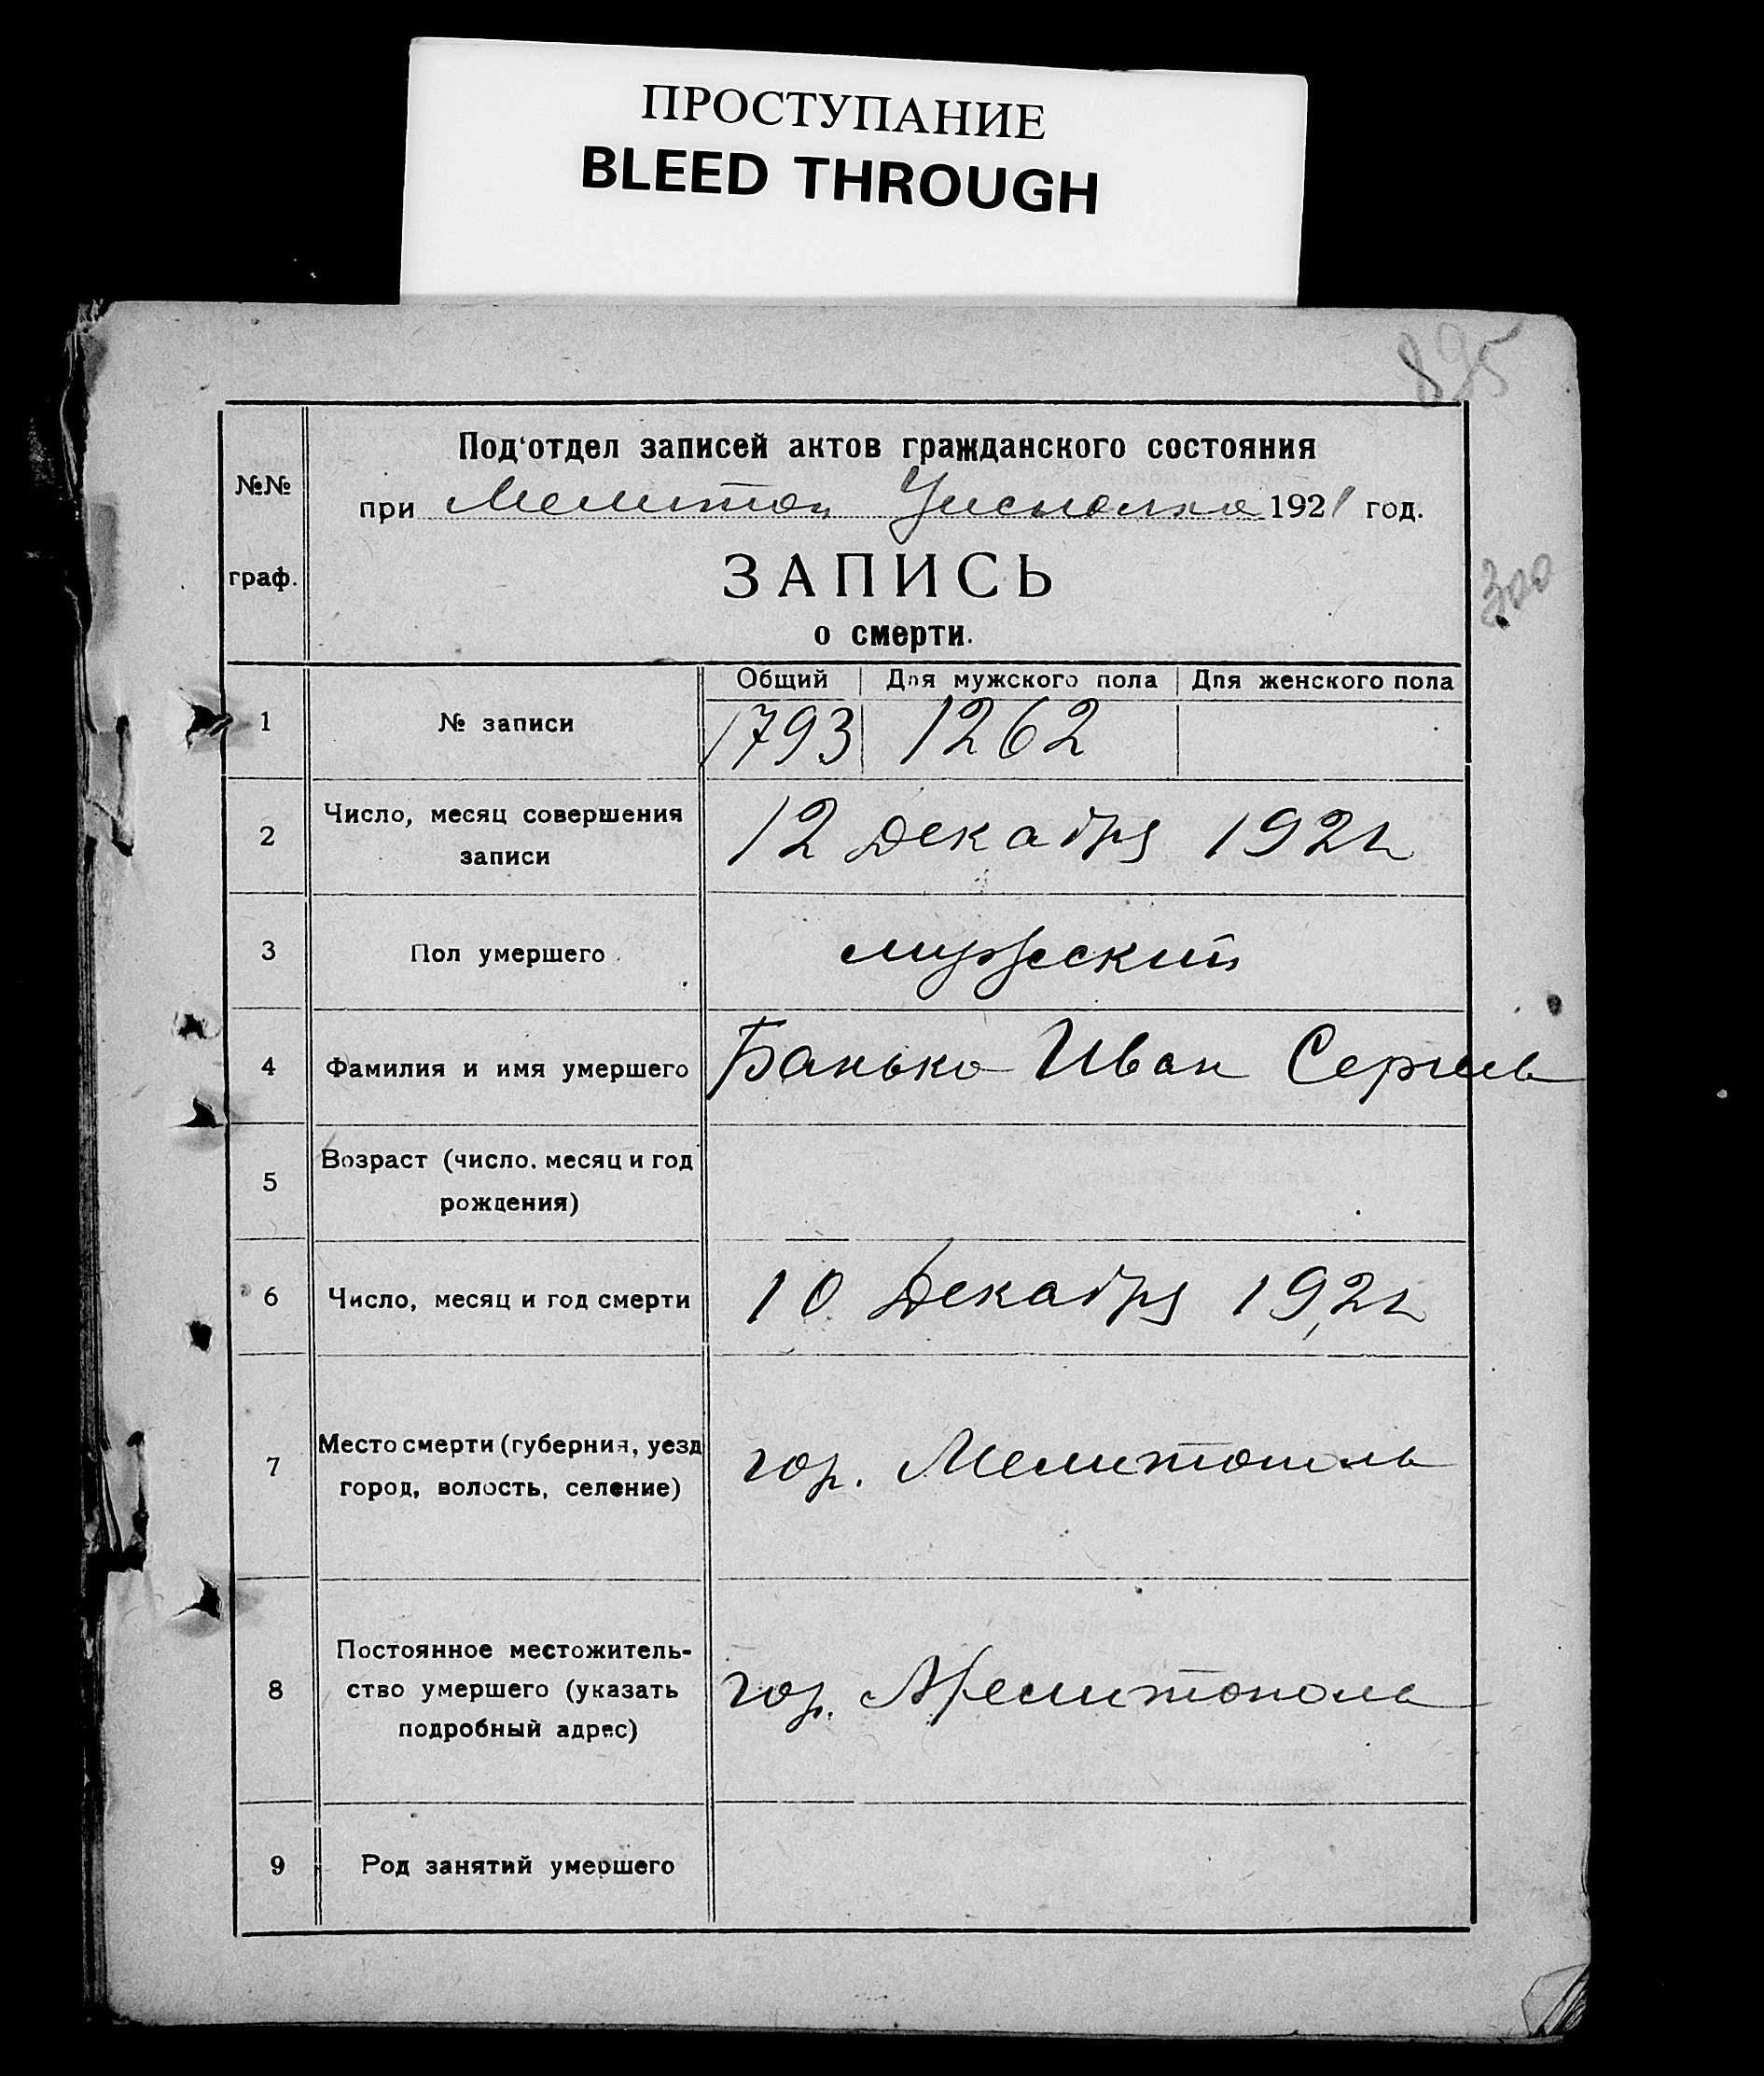 ПРОСТУПАНИЕ
BLEED THROUGH
895
Под'отдел записей актов гражданского состояния
№№
при Мелитоп Уисполко 1921 год.
граф.
ЗАПИСЬ
300
о смерти.
Общий Для мужского пола Для женского пола
1 № записи 1793 1262
2 Число, месяц совершения
записи
12 Декабря 1921
3 Пол умершего мужеский
4 Фамилия и имя умершего Банько Иван Сергеев
5 Возраст (число, месяц и год
рождения)
6 Число, месяц и год смерти 10 Декабря 1921
7 Место смерти (губерния, уезд
город, волость, селение)
гор. Мелитополь
Постоянное местожитель-
8 ство умершего (указать гор. Мелитополь
подробный адрес)
9 Род занятий умершего